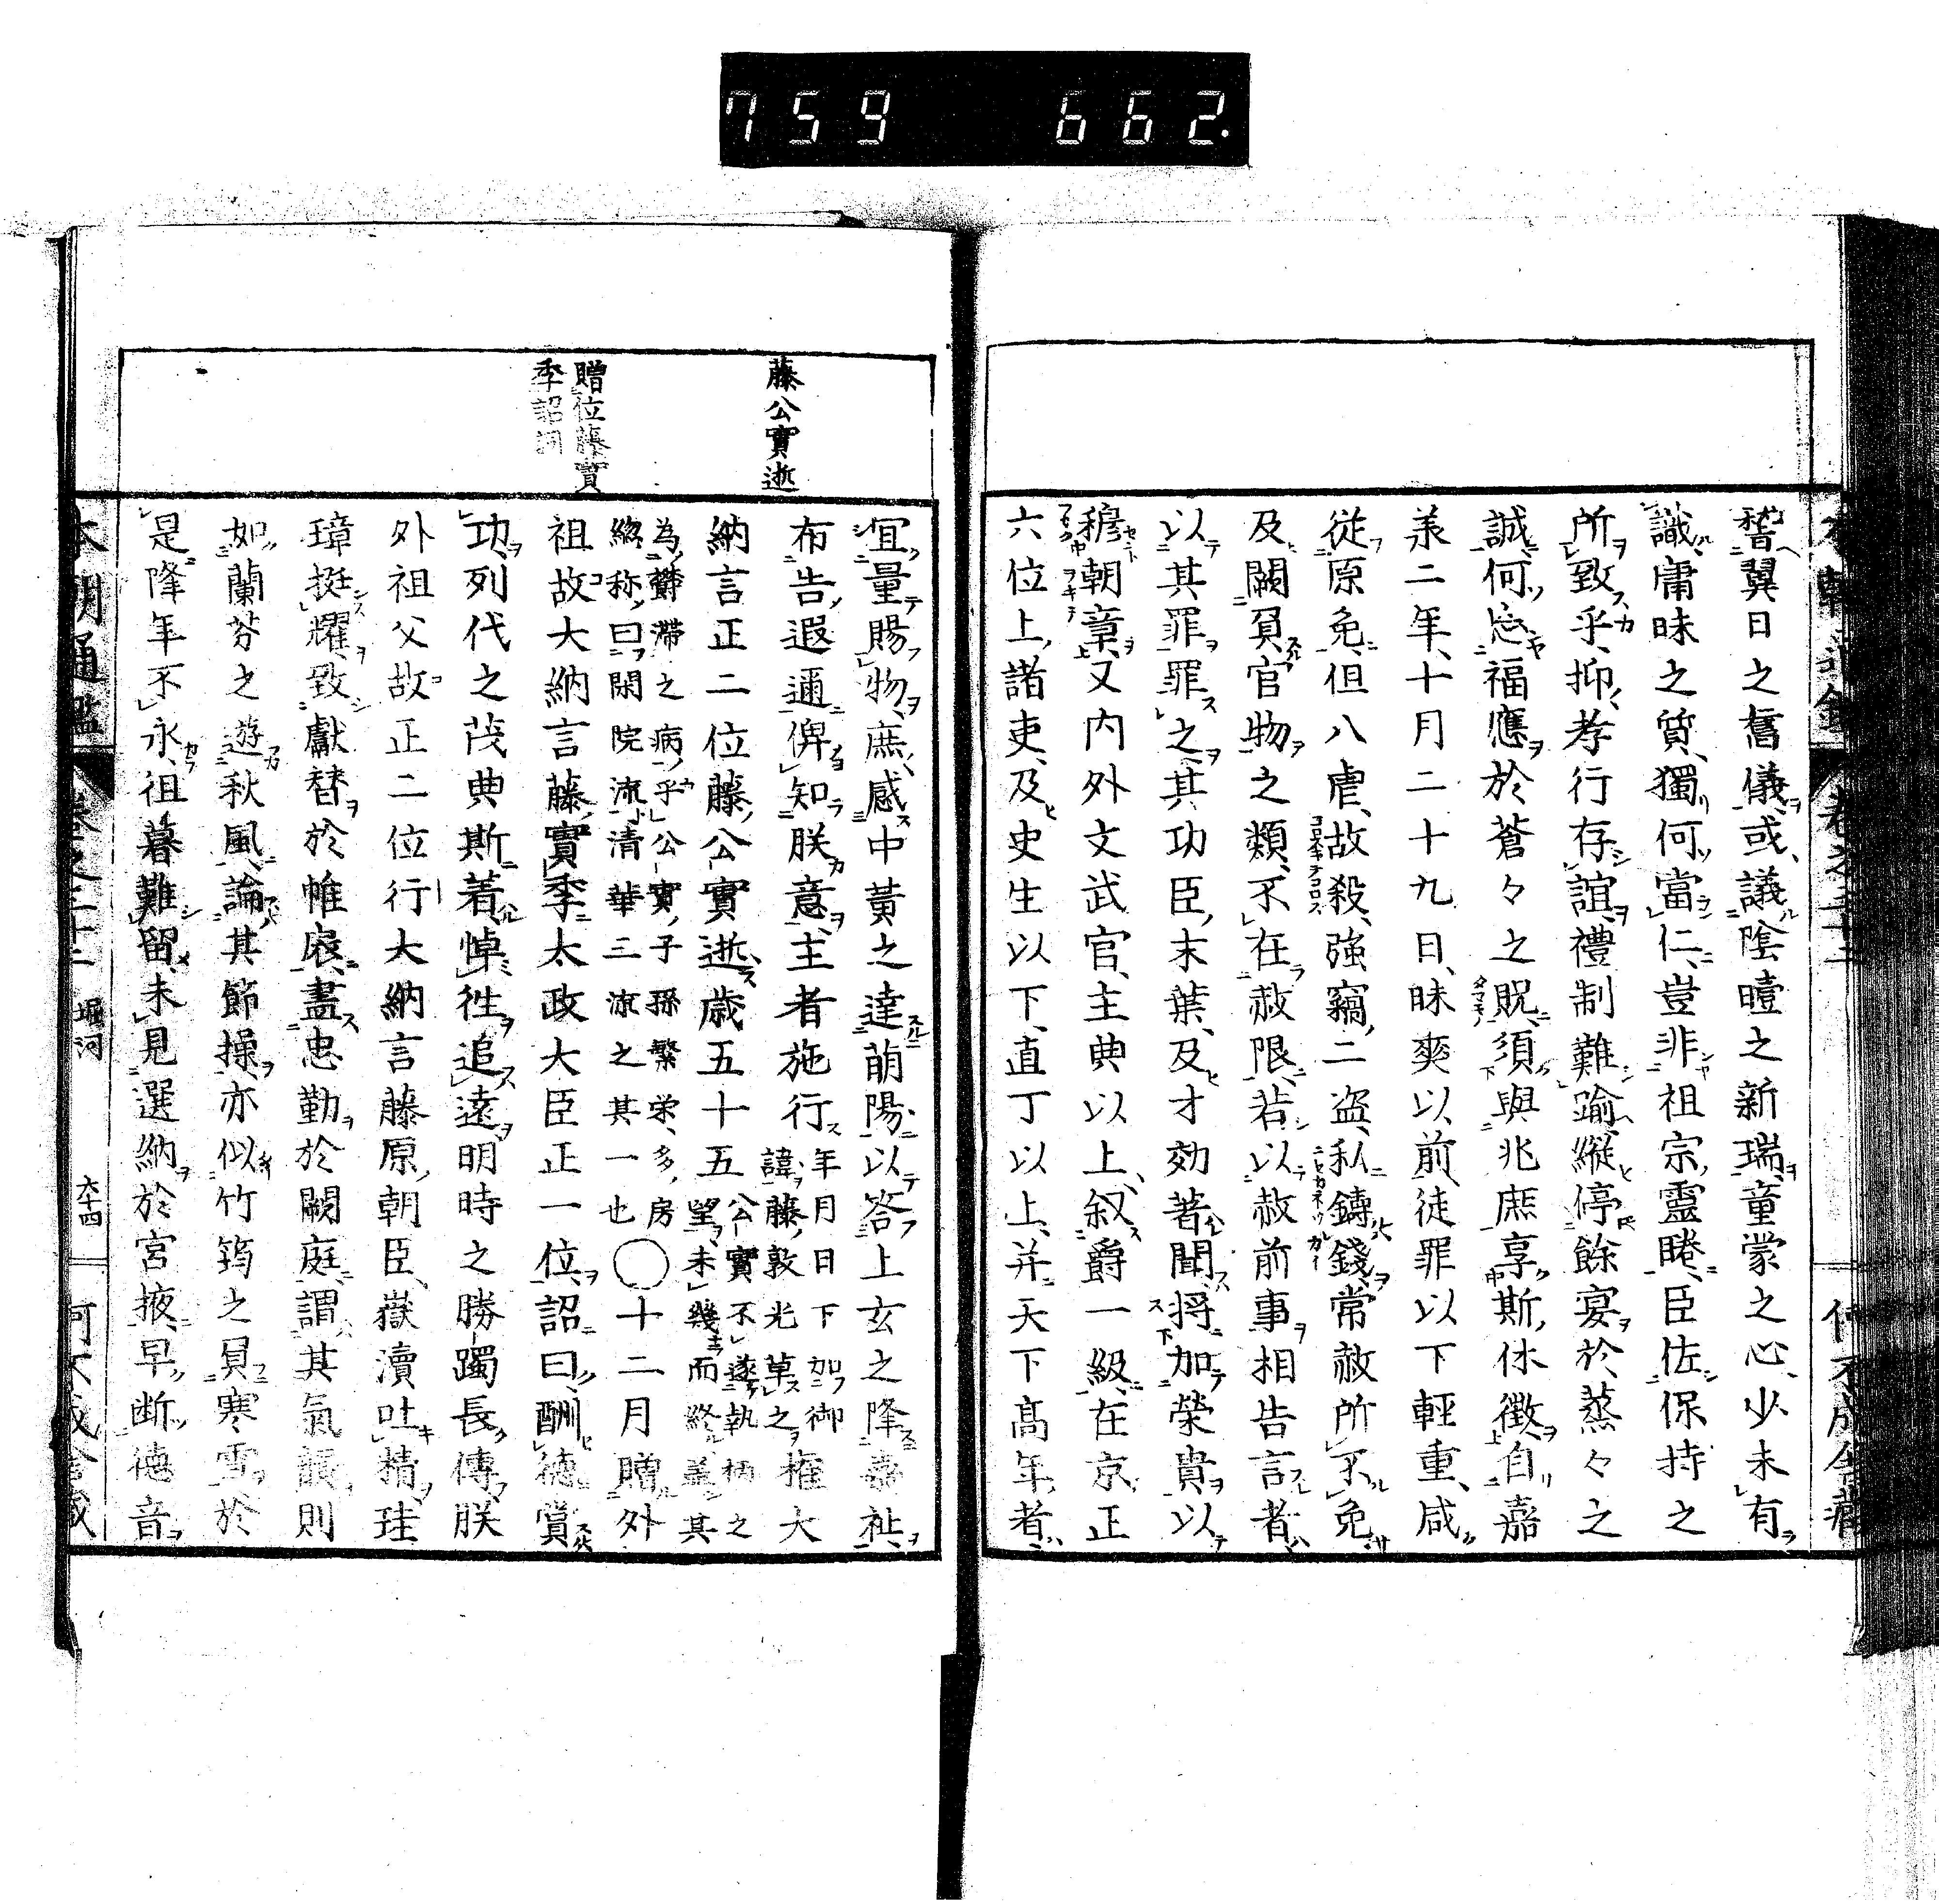 759 662.
稽翼日之舊儀、或議陰曀之新瑞、童蒙之心、少未有
識、庸昧之質、獨何當仁、豈非祖宗靈睠、臣佐保持之
所致乎、抑孝行存誼、禮制難踰、縱停餘宴於蒸々之
誠、何忘福應於蒼々之貺、須與兆庶享斯休徵、自嘉
羕二年、十月二十九日、昧爽以前、徒罪以下輕重、咸
從原免、但八虐、故殺、強竊二盗、私鑄錢、常赦所不免
及闕負官物之類、不在赦限、若以赦前事相告言者
以其罪罪之、其功臣末葉、及才効著聞、將加榮貴、以
穆朝章、又内外文武官、主典以上、叙爵一級、在京正
六位上、諸吏、及史生以下、直丁以上、并天下髙年者、
宜量賜物、庶感中黃之達萠陽、以答上玄之降嘉祉、
布告遐邇、俾知朕意、主者施行年月日下加御
諱、藤敦光草之權大
納言正二位藤公實逝、歳五十五公實不遂執柄之
望、未幾而終、蓋其
為欝滯之病乎、公實子孫繁栄、多房
絡、称曰閑院流、清華三流之其一也〇十二月贈外
祖故大納言藤實季太政大臣正一位、詔曰、酬德賞
功、列代之茂典斯著、悼徃追遠、明時之勝躅長傳、朕
外祖父故正二位行大納言藤原朝臣、嶽瀆吐精、珪
璋挺耀、致獻替於帷扆、盡忠勤於闕庭、謂其氣韻則
如蘭芬之遊秋風、論其節操、亦似竹筠之負寒雪、於
是降年不永、徂暮難留、未見選納於宮掖、早断德音
藤公實逝
贈位藤實
季詔詞
本朝通鑑
堀河
六十四